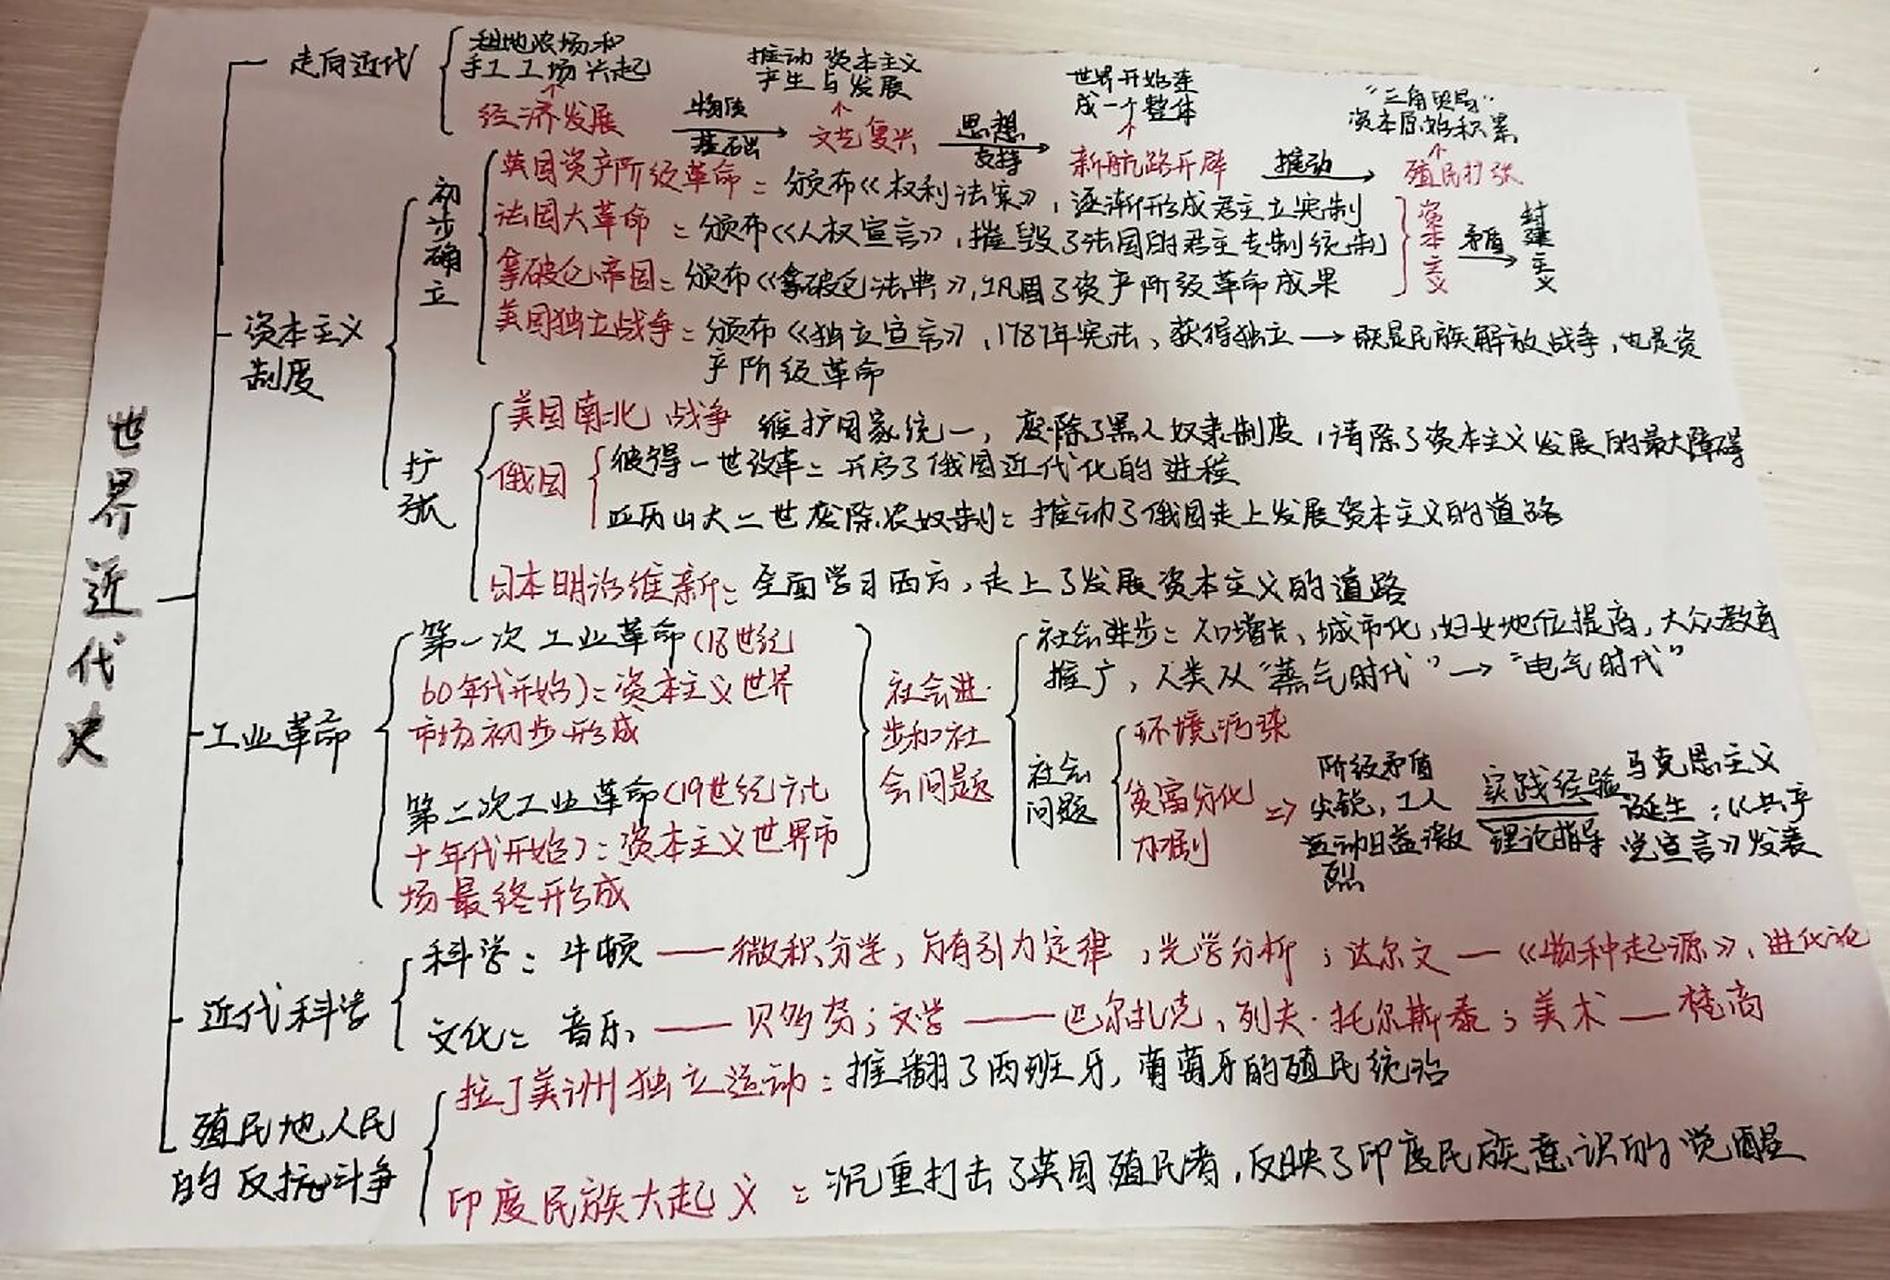 世界近代史
走向近代
租地农场和
手工工场兴起
经济发展
物质
基础
推动资本主义
产生与发展
文艺复兴
思想
支持
世界开始连
成一个整体
新航路开辟
推动
“三角贸易”
资本原始积累
殖民扩张
资本主义
制度
初步确立
英国资产阶级革命：颁布《权利法案》，逐渐形成君主立宪制
法国大革命：颁布《人权宣言》，摧毁了法国的君主专制统制
拿破仑帝国：颁布《拿破仑法典》，巩固了资产阶级革命成果
资本主义
矛盾
封建主义
美国独立战争：颁布《独立宣言》、1787年宪法、获得独立→既是民族解放战争，也是资
产阶级革命
扩张
美国南北战争 维护国家统一，废除了黑人奴隶制度，清除了资本主义发展的最大障碍
俄国
彼得一世改革：开启了俄国近代化的进程
亚历山大二世废除农奴制：推动了俄国走上发展资本主义的道路
日本明治维新：全面学习西方，走上了发展资本主义的道路
工业革命
第一次工业革命（18世纪
60年代开始）：资本主义世界
市场初步形成
第二次工业革命（19世纪六七
十年代开始）：资本主义世界市
场最终形成
社会进
步和社
会问题
社会进步：人口增长、城市化，妇女地位提高，大众教育
推广，人类从“蒸气时代”→“电气时代”
社会
问题
环境污染
贫富分化
加剧
⇒
阶级矛盾
尖锐，工人
运动日益激
烈
实践经验
理论指导
马克思主义
诞生：《共产
党宣言》发表
近代科学
科学：牛顿——微积分学，万有引力定律，光学分析；达尔文—《物种起源》、进化论
文化：音乐——贝多芬；文学——巴尔扎克、列夫·托尔斯泰；美术—梵高
殖民地人民
的反抗斗争
拉丁美洲独立运动：推翻了西班牙，葡萄牙的殖民统治
印度民族大起义：沉重打击了英国殖民者，反映了印度民族意识的觉醒